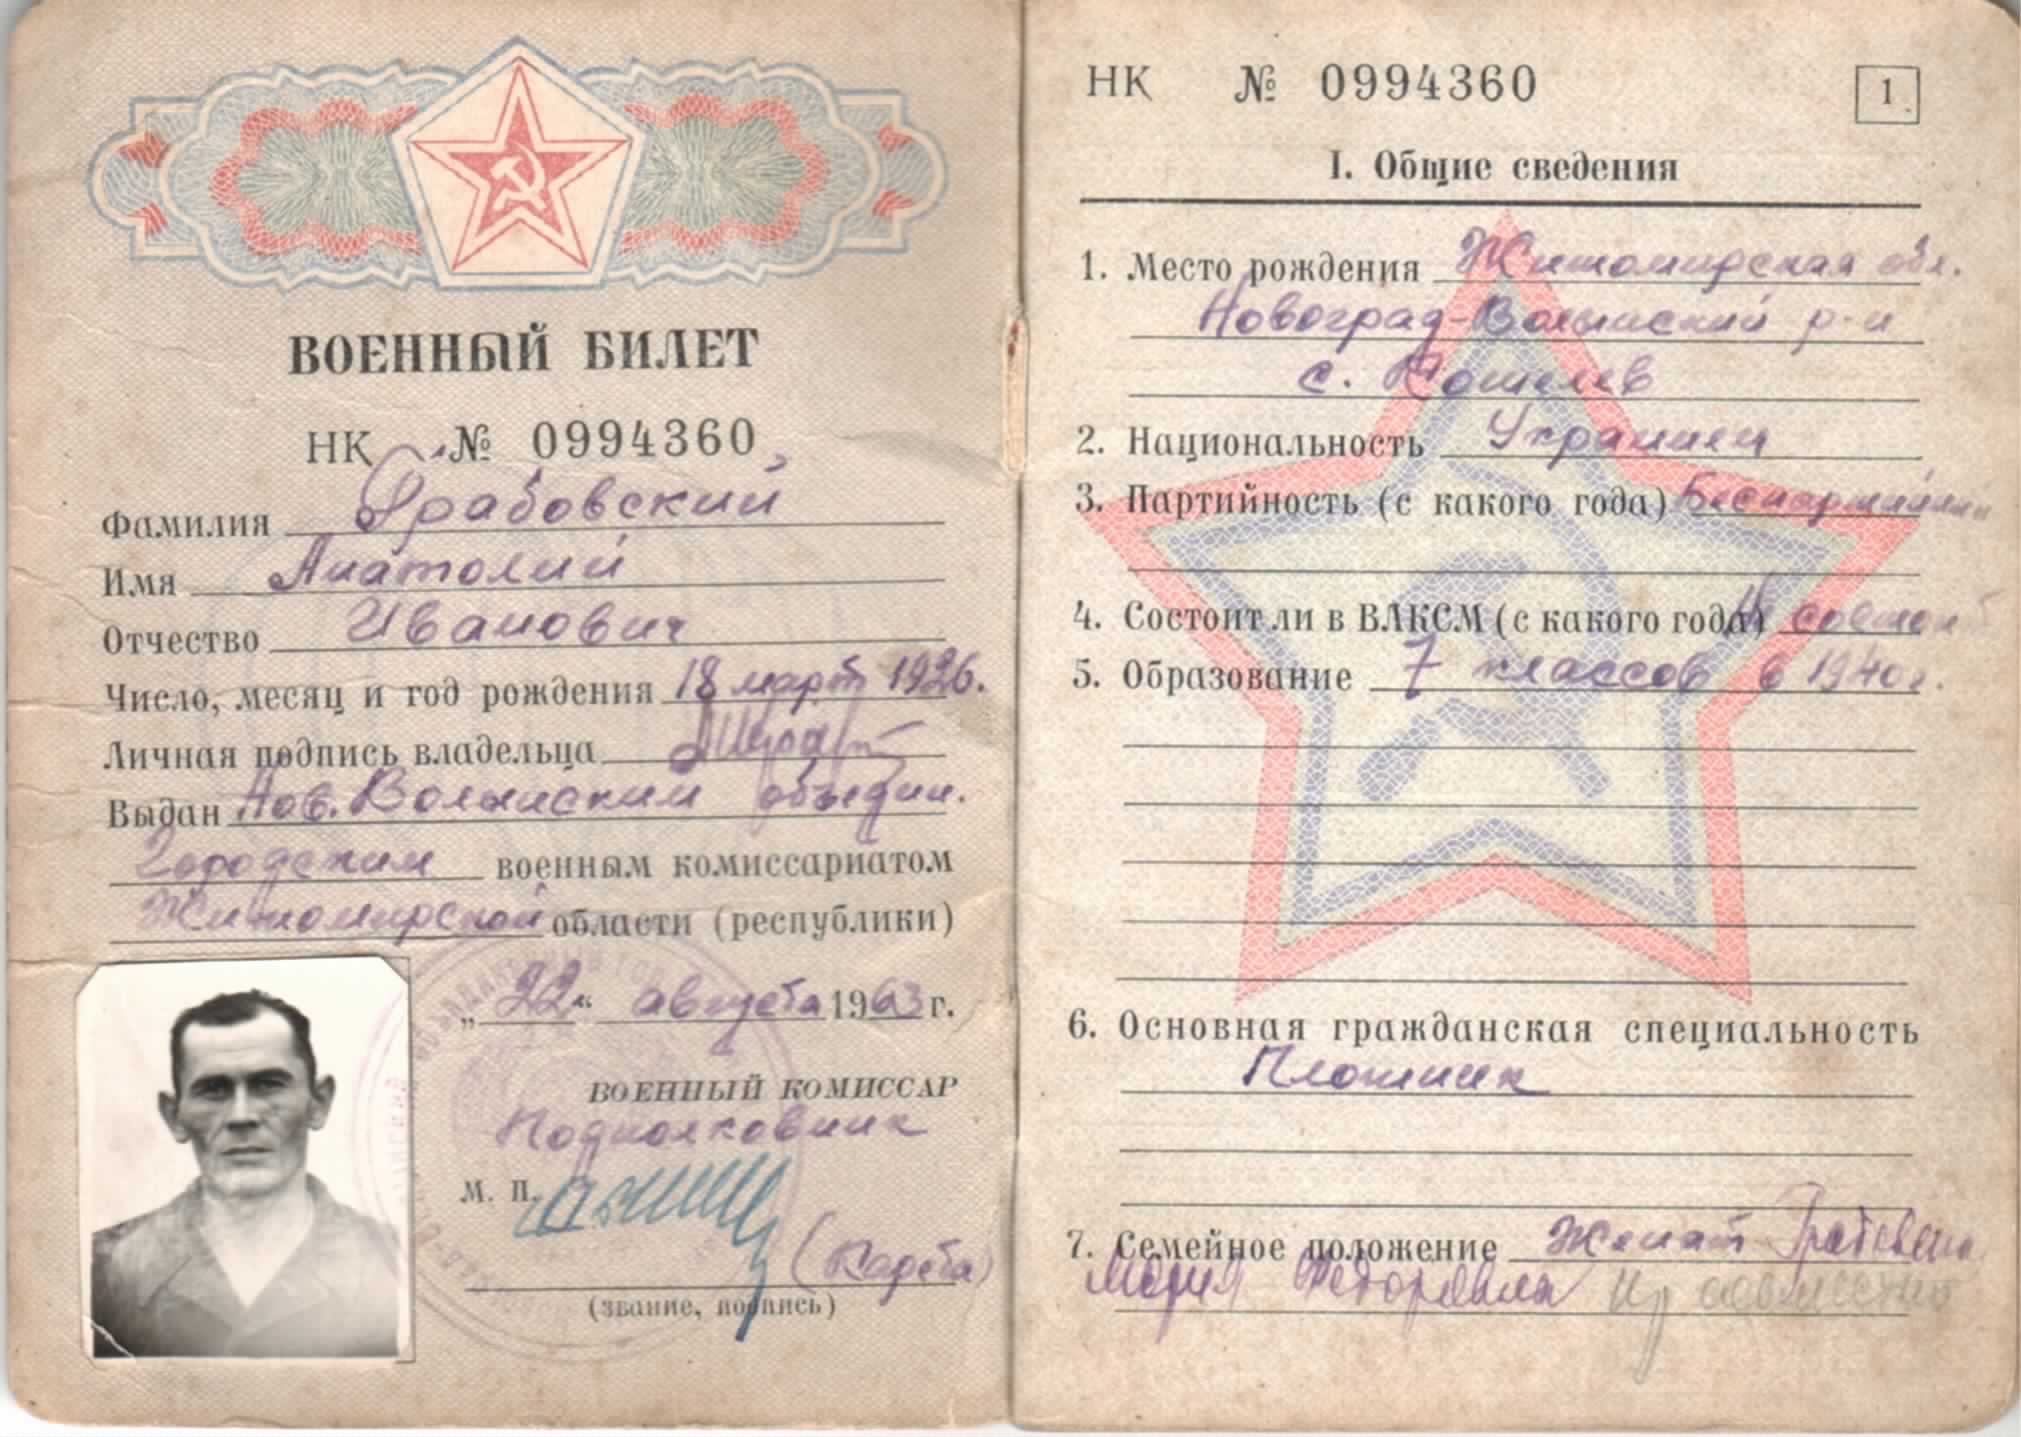 ВОЕННЫЙ БИЛЕТ
НК № 0994360
Фамилия Грабовский
Имя Анатолий
Отчество Иванович
Число, месяц и год рождения 18 март 1926.
Личная подпись владельца
Выдан Нов. Волынским объедин.
Городским военным комиссариатом
Житомирской области (республики)
„22“ августа 1963 г.
ВОЕННЫЙ КОМИССАР
Подполковник
М. П.
(звание, подпись)
НК № 0994360
1
I. Общие сведения
1. Место рождения Житомирская обл.
Новоград-Волынский р-н
с.
2. Национальность Украинец
3. Партийность (с какого года) Беспартийный
4. Состоит ли в ВЛКСМ (с какого года) Не состоит
5. Образование 7 классов в 1940 г.
6. Основная гражданская специальность
Плотник
7. Семейное положение Женат
Мария Федоровна